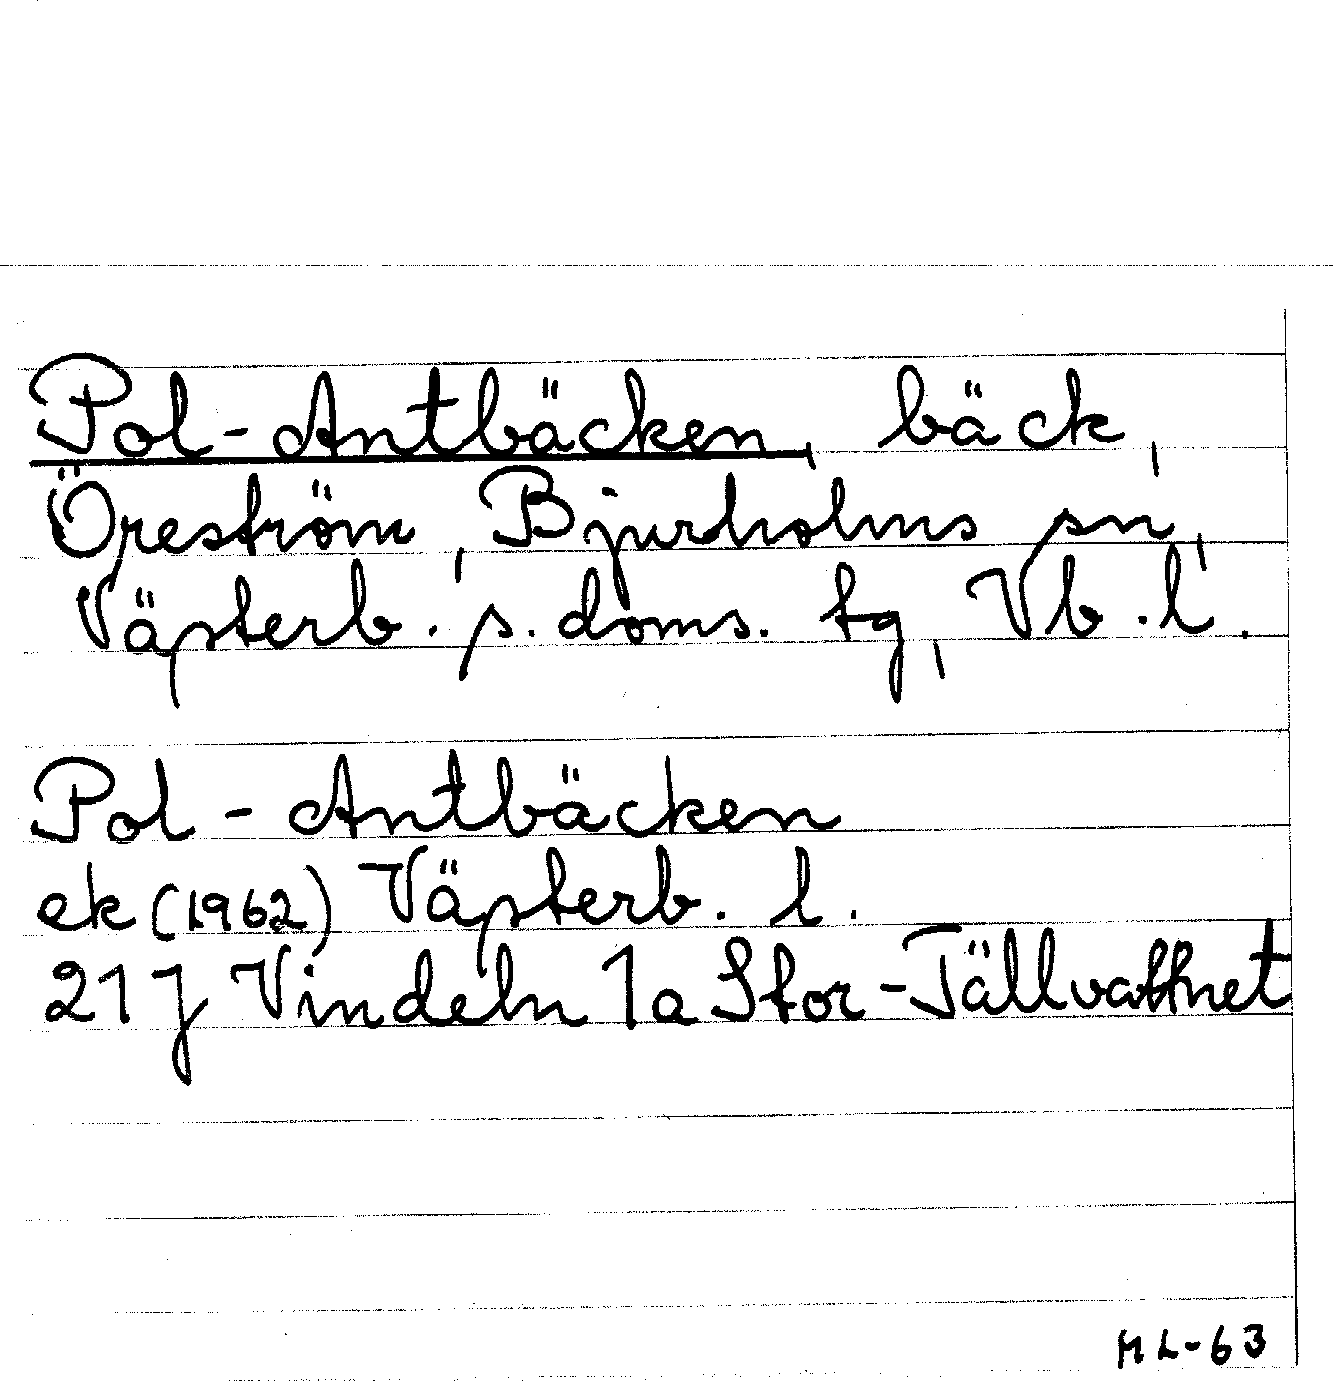 Pol-Antbäcken, bäck,
Öreström, Bjurholms sn,
Västerb. s. doms. tg, Vb. l.
Pol-Antbäcken
ek (1962) Västerb. l.
21 J Vindeln 1a Stor-Tällvattnet
ML-63